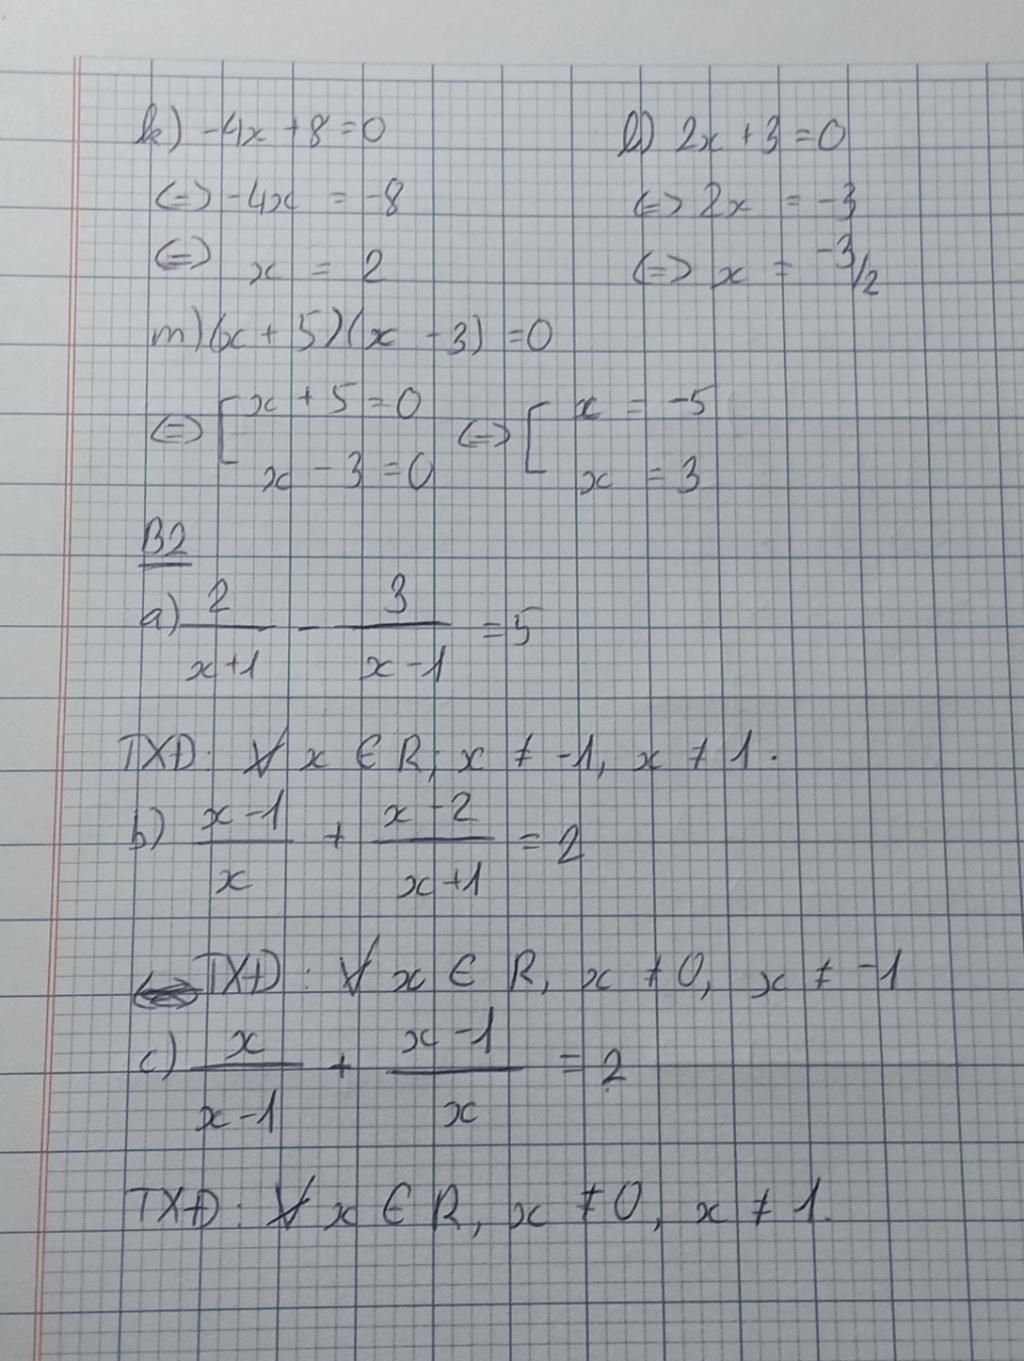 k) -4x + 8 = 0
<=> -4x = -8
<=> x = 2
l) 2x + 3 = 0
<=> 2x = -3
<=> x = -3/2
m) (x + 5)(x - 3) = 0
<=> [ x + 5 = 0 <=> [ x = -5
x - 3 = 0 x = 3
B2
a) 2/(x+1) - 3/(x-1) = 5
TXĐ: ∀ x ∈ R; x ≠ -1, x ≠ 1.
b) (x-1)/x + (x-2)/(x+1) = 2
TXĐ: ∀ x ∈ R, x ≠ 0, x ≠ -1
c) x/(x-1) + (x-1)/x = 2
TXĐ: ∀ x ∈ R, x ≠ 0, x ≠ 1.